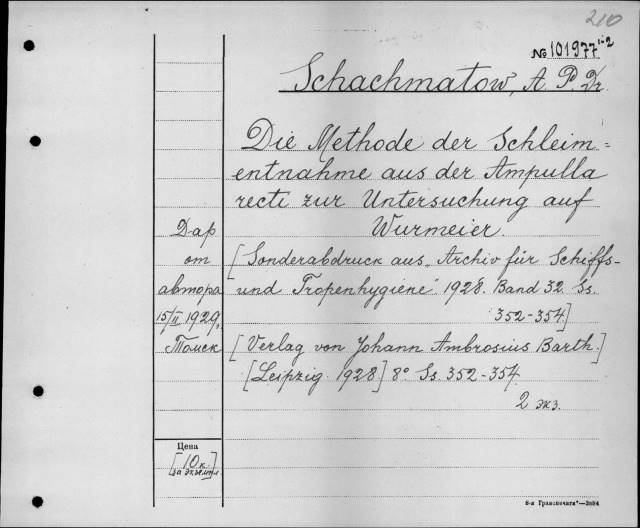 210
№ 101977 1-2
Schachmatow, A. P. Dr.
Die Methode der Schleim=
entnahme aus der Ampulla
recti zur Untersuchung auf
Wurmeier.
[Sonderabdruck aus „Archiv für Schiffs-
und Tropenhygiene" 1928. Band 32. Ss.
352-354.]
[Verlag von Johann Ambrosius Barth.]
[Leipzig. 1928] 8° Ss. 352-354.
2 экз.
Дар
от
автора
15/II 1929,
Томск
Цена
[10 к.
за экземпл
8-я Транспечати"—3894